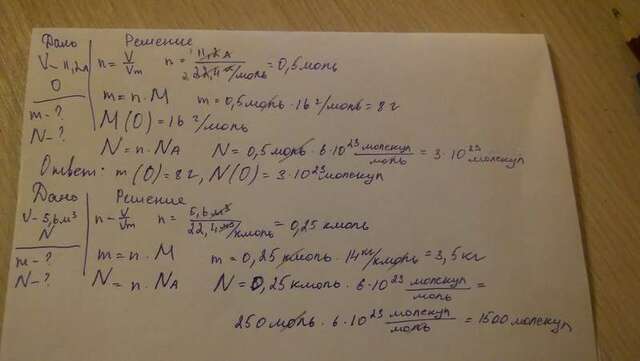 Дано Решение
V-11,2л n=V/Vm n=11,2л/22,4л/моль=0,5моль
O
m-? m=n·M m=0,5моль·16г/моль=8г
M(O)=16г/моль
N-? N=n·NA N=0,5моль·6·10²³молекул/моль=3·10²³молекул
Ответ: m(O)=8г, N(O)=3·10²³молекул
Дано Решение
V-5,6м³ n-V/Vm n=5,6м³/22,4м³/кмоль=0,25кмоль
N
m-? m=n·M m=0,25кмоль·14кг/кмоль=3,5кг
N-? N=n·NA N=0,25кмоль·6·10²³молекул/моль=
250моль·6·10²³молекул/моль=1500молекул